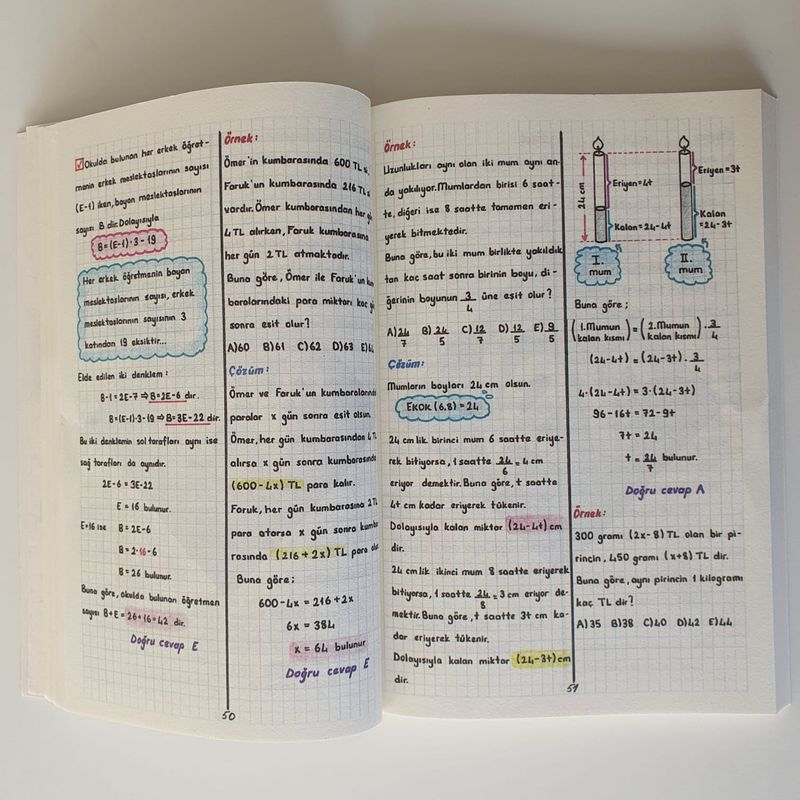 Okulda bulunan her erkek öğret-
menin erkek meslektaşlarının sayısı
(E-1) iken, bayan meslektaşlarının
sayısı B dir. Dolayısıyla
B=(E-1)·3-19
Her erkek öğretmenin bayan
meslektaşlarının sayısı, erkek
meslektaşlarının sayısının 3
katından 19 eksiktir...
Elde edilen iki denklem:
B-1=2E-7⇒B=2E-6 dır.
B=(E-1)·3-19⇒B=3E-22 dir.
Bu iki denklemin sol tarafları aynı ise
sağ tarafları da aynıdır.
2E-6=3E-22
E=16 bulunur.
E=16 ise B=2E-6
B=2·16-6
B=26 bulunur.
Buna göre, okulda bulunan öğretmen
sayısı B+E=26+16=42 dir.
Doğru cevap E
Örnek:
Ömer'in kumbarasında 600 TL si,
Faruk'un kumbarasında 216 TL si
vardır. Ömer kumbarasından her
4 TL alırken, Faruk kumbarasına
her gün 2 TL atmaktadır.
Buna göre, Ömer ile Faruk'un
baralarındaki para miktarı kaç
sonra eşit olur?
A)60 B)61 C)62 D)63
Çözüm:
Ömer ve Faruk'un kumbaralarında
paralar x gün sonra eşit olsun.
Ömer, her gün kumbarasından 4
alırsa x gün sonra kumbarasında
(600-4x) TL para kalır.
Faruk, her gün kumbarasına 2
para atarsa x gün sonra
rasında (216+2x) TL para
Buna göre;
600-4x=216+2x
6x=384
x=64 bulunur
Doğru cevap E
50
Örnek:
Uzunlukları aynı olan iki mum aynı an-
da yakılıyor. Mumlardan birisi 6 saat-
te, diğeri ise 8 saatte tamamen eri-
yerek bitmektedir.
Buna göre, bu iki mum birlikte yakıldık
tan kaç saat sonra birinin boyu, di-
ğerinin boyunun 3/4 üne eşit olur?
A)24/7 B)24/5 C)12/7 D)12/5 E)9/5
Çözüm:
Mumların boyları 24 cm olsun.
EKOK (6,8)=24
24 cm lik birinci mum 6 saatte eriye-
rek bitiyorsa, 1 saatte 24/6=4 cm
eriyor demektir. Buna göre, t saatte
4t cm kadar eriyerek tükenir.
Dolayısıyla kalan miktar (24-4t) cm
dir.
24 cm lik ikinci mum 8 saatte eriyerek
bitiyorsa, 1 saatte 24/8=3 cm eriyor de-
mektir. Buna göre, t saatte 3t cm ka-
dar eriyerek tükenir.
Dolayısıyla kalan miktar (24-3t) cm
dir.
24 cm
Eriyen=4t
Kalan=24-4t
Eriyen=3t
Kalan
=24-3t
I.
mum
II.
mum
Buna göre;
(1.Mumun kalan kısmı)=(2.Mumun kalan kısmı)·3/4
(24-4t)=(24-3t)·3/4
4·(24-4t)=3·(24-3t)
96-16t=72-9t
7t=24
t=24/7 bulunur.
Doğru cevap A
Örnek:
300 gramı (2x-8) TL olan bir pi-
rincin, 450 gramı (x+8) TL dir.
Buna göre, aynı pirincin 1 kilogramı
kaç TL dir?
A)35 B)38 C)40 D)42 E)44
51